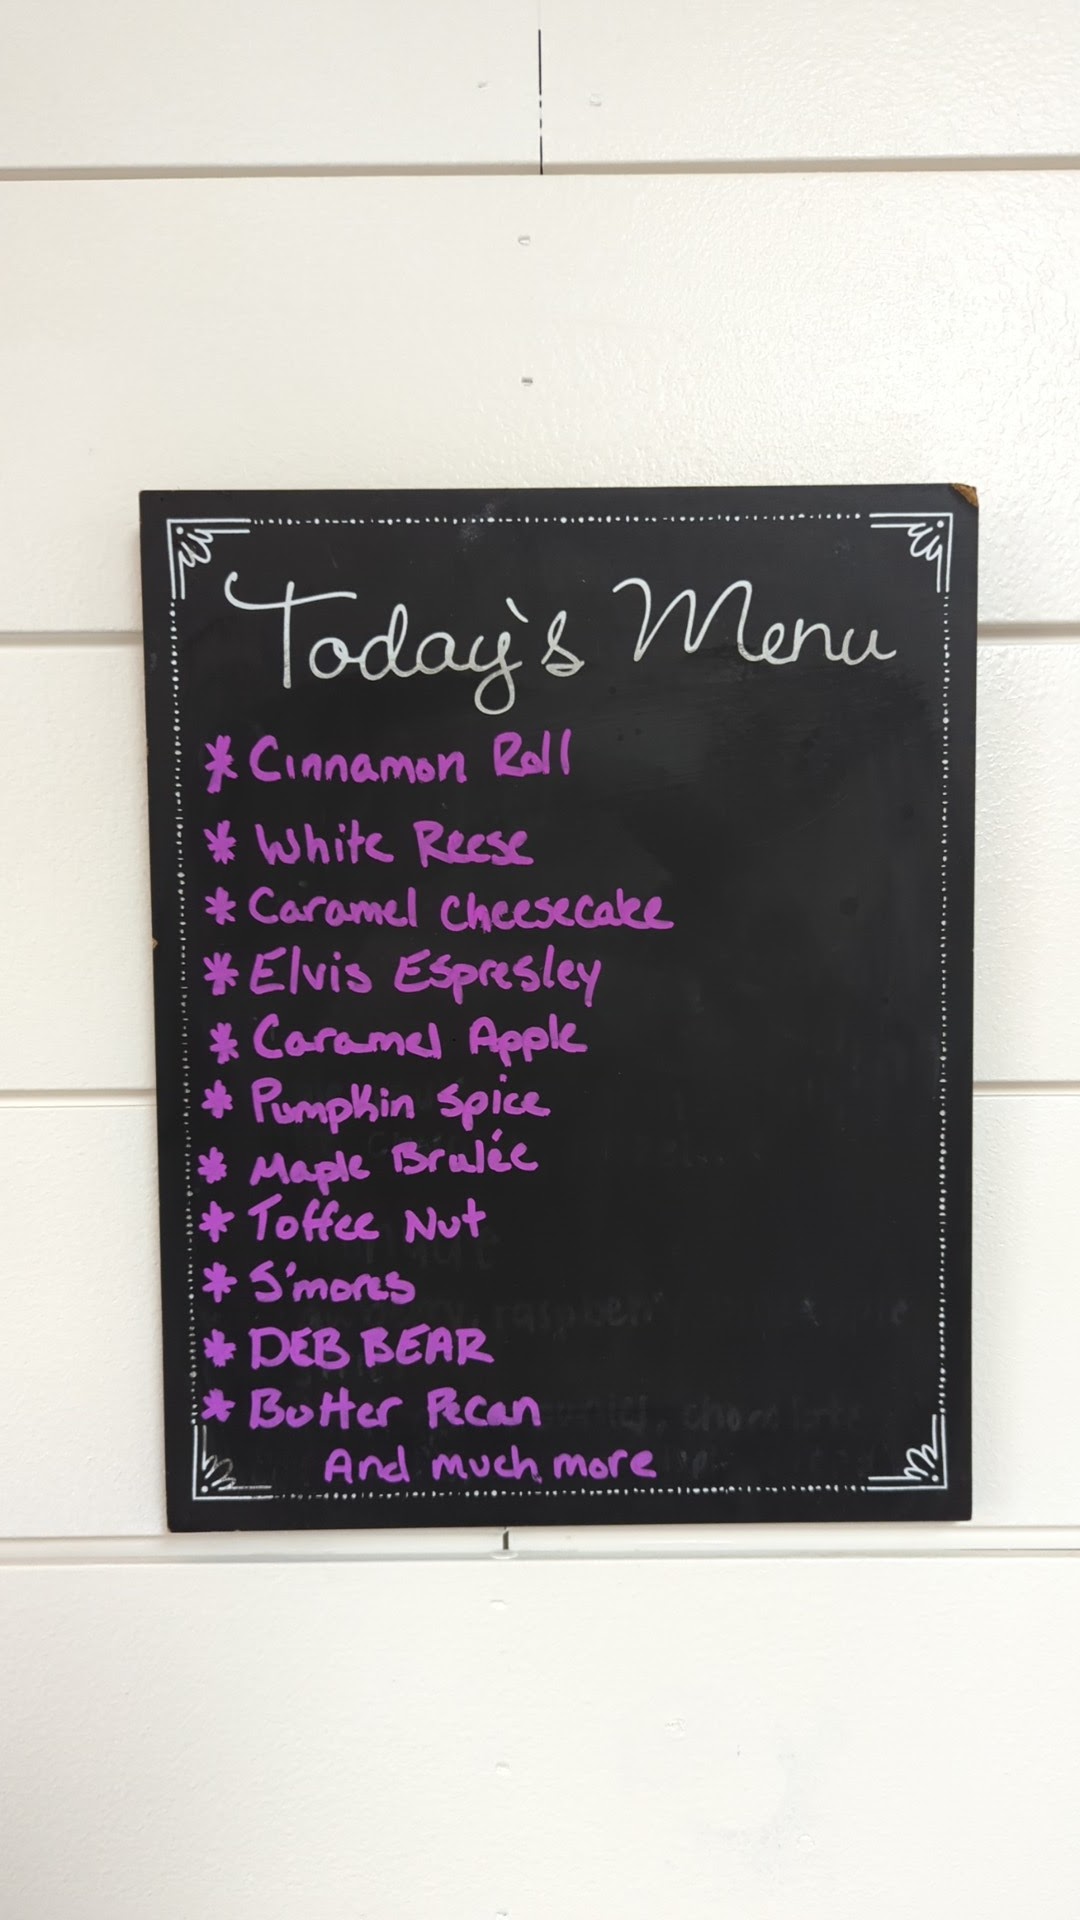 Today's Menu
* Cinnamon Roll
* White Reese
* Caramel Cheesecake
* Elvis Espresley
* Caramel Apple
* Pumpkin Spice
* Maple Brulée
* Toffee Nut
* S'mores
* DEB BEAR
* Butter Pecan
And much more